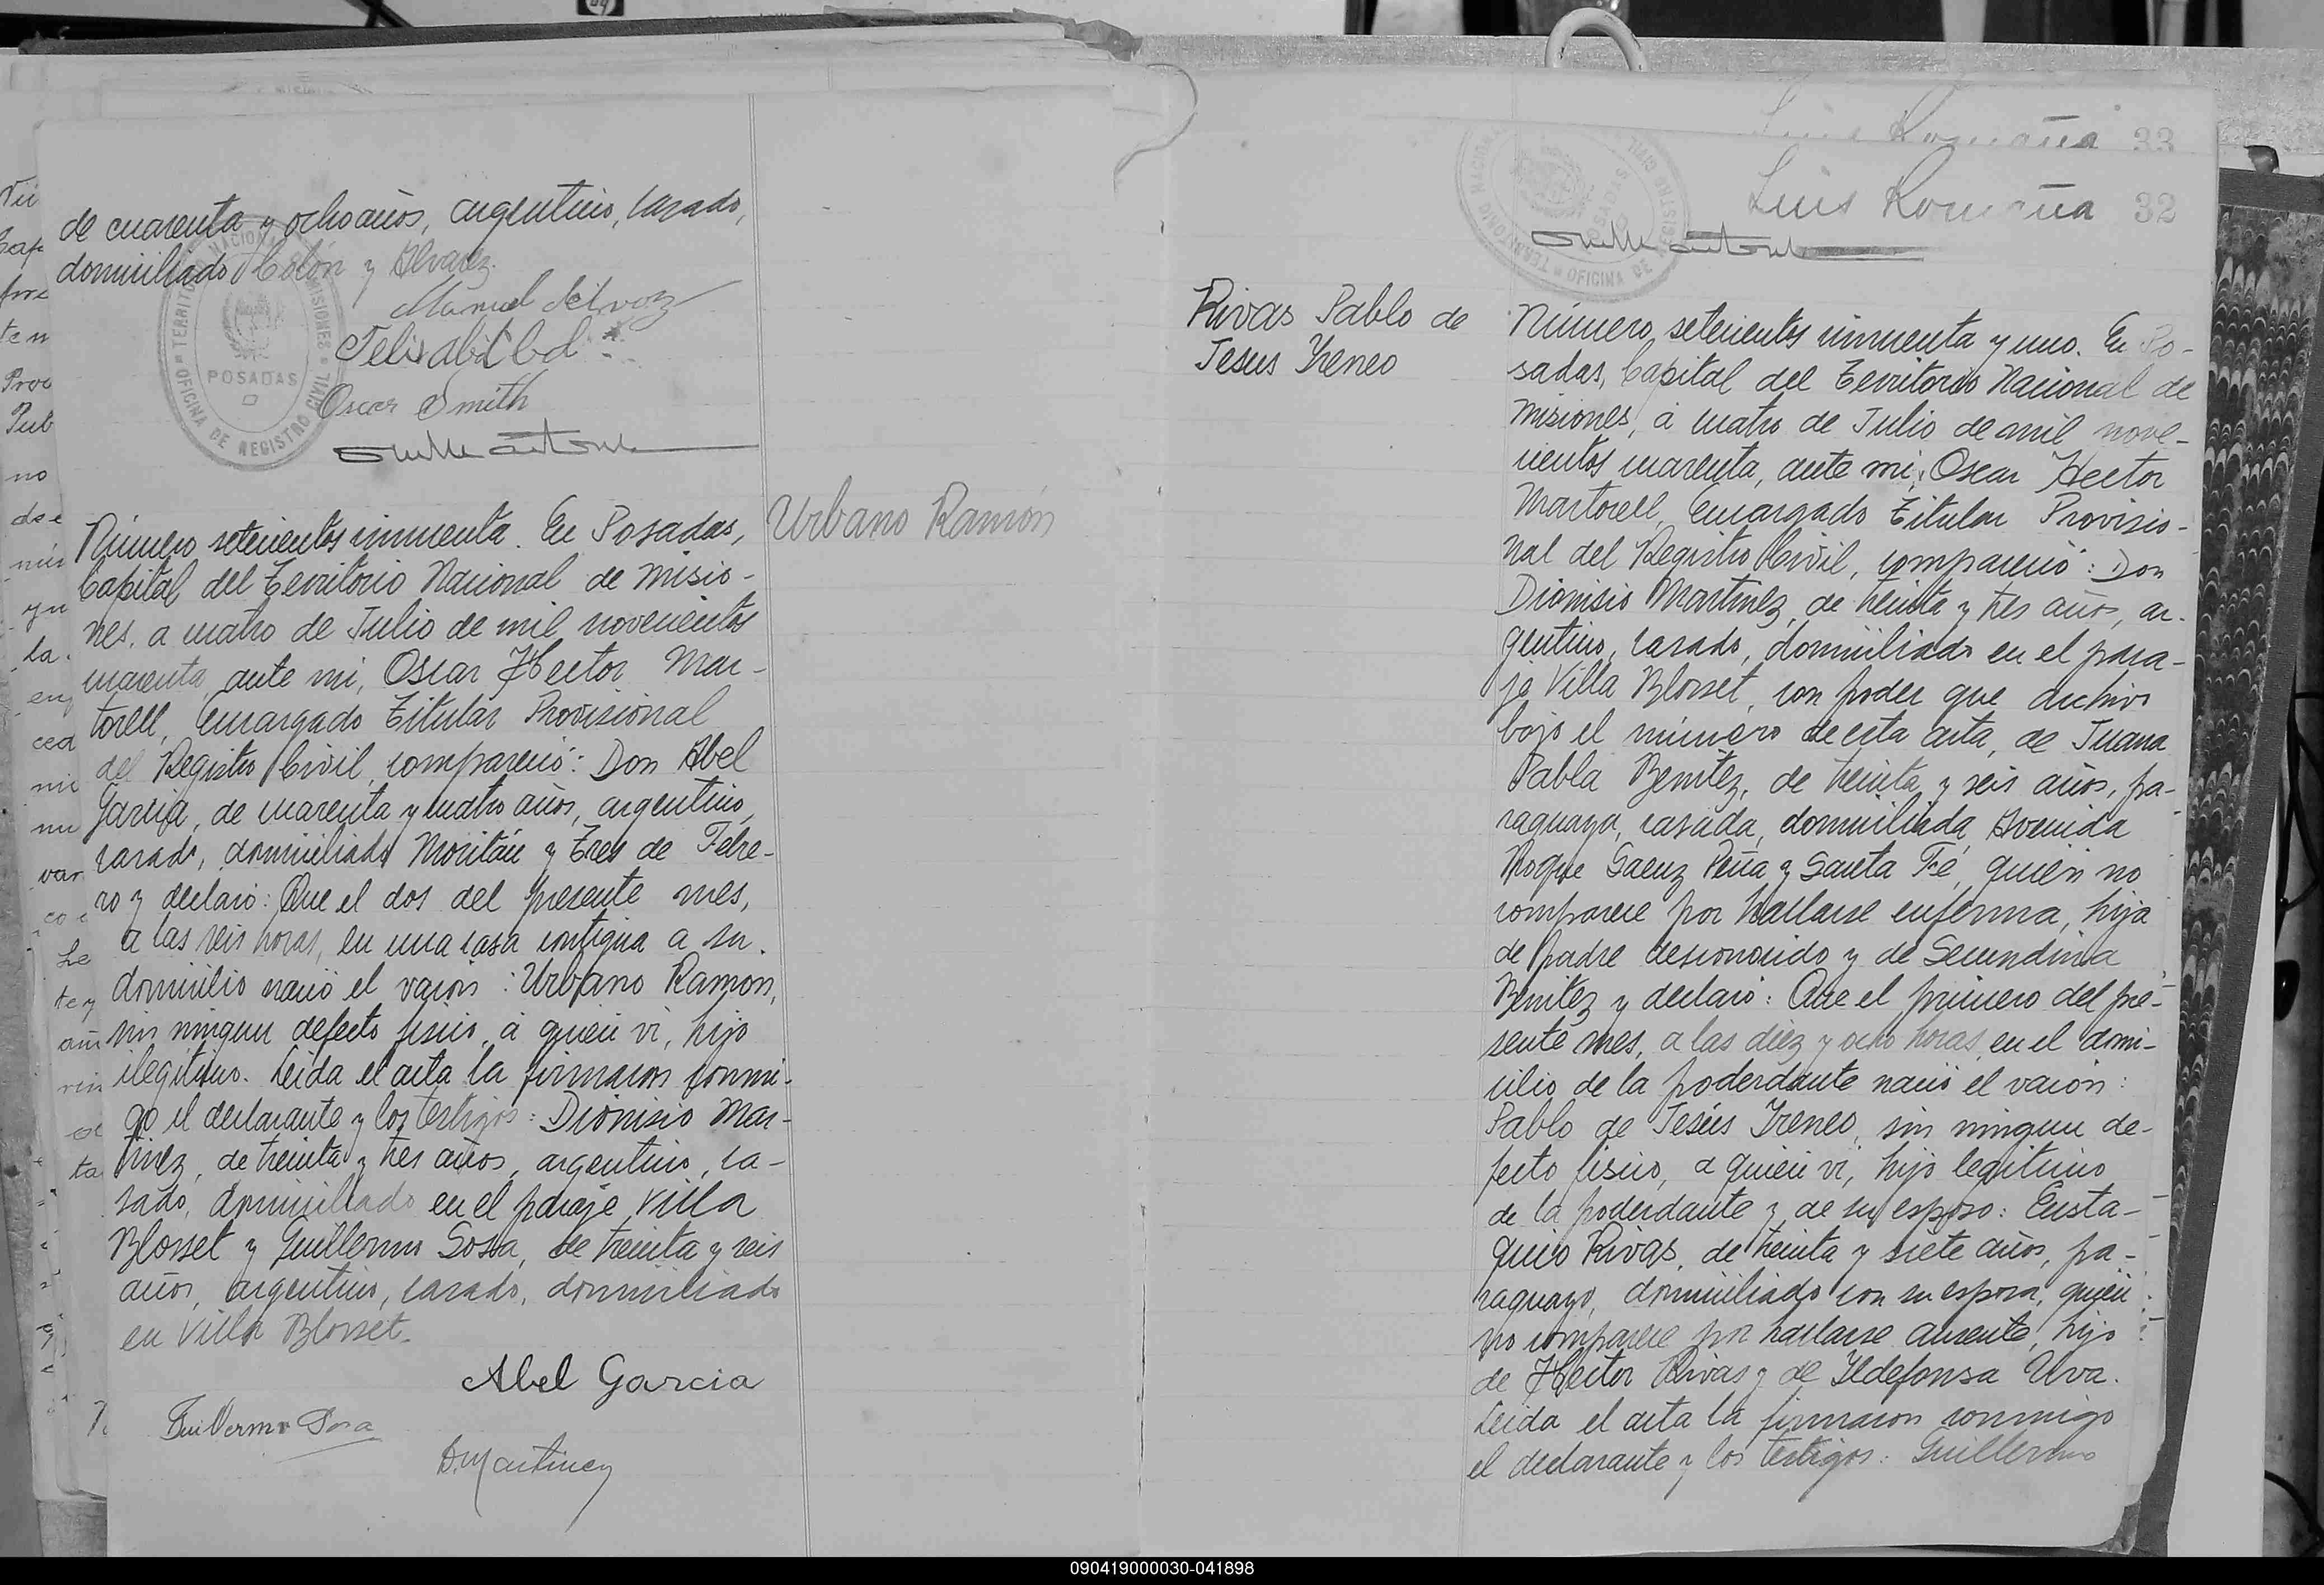 de cuarenta y ocho años, argentino, casado,
domiciliado Colón y Alvarez.
TERRITORIO NACIONAL DE MISIONES
OFICINA DE REGISTRO CIVIL
POSADAS
Oscar Smith
Número setecientos cincuenta. En Posadas,
Capital del Territorio Nacional de Misio-
nes, a cuatro de Julio de mil novecientos
cuarenta, ante mi, Oscar Hector Mar-
torell, Encargado Titular Provisional
del Registro Civil, compareció: Don Abel
Garcia, de cuarenta y cuatro años, argentino,
casado, domiciliado Moritán y Tres de Febre-
ro y declaró: Que el dos del presente mes,
a las seis horas, en una casa contigua a su
domicilio nació el varón: Urbano Ramon,
sin ningun defecto fisico, á quien vi, hijo
ilegitimo. Leida el acta la firmaron conmi-
go el declarante y los testigos: Dionisio Mar-
tinez, de treinta y tres años, argentino, ca-
sado, domiciliado en el paraje Villa
Blosset y Guillermo Sosa, de treinta y seis
años, argentino, casado, domiciliado
en Villa Blosset.
Abel Garcia
Guillermo Sosa
D. Martinez
Urbano Ramón
Luis Romaña 33
Luis Romaña 32
TERRITORIO NACIONAL
OFICINA DE REGISTRO CIVIL
POSADAS
Rivas Pablo de
Jesus Yreneo
Número setecientos cincuenta y uno. En Po-
sadas, Capital del Territorio Nacional de
Misiones, á cuatro de Julio de mil nove-
cientos cuarenta, ante mi, Oscar Hector
Martorell, Encargado Titular Provisio-
nal del Registro Civil, compareció: Don
Dionisio Martinez, de treinta y tres años, ar-
gentino, casado, domiciliado en el para-
je Villa Blosset, con poder que archivo
bajo el número de esta acta, de Juana
Pabla Benitez, de treinta y seis años, pa-
raguaya, casada, domiciliada Avenida
Roque Saenz Peña y Santa Fé, quien no
comparece por hallarse enferma, hija
de padre desconocido y de Secundina
Benitez y declaró: Que el primero del pre-
sente mes, a las diez y ocho horas, en el domi-
cilio de la poderdante nació el varón:
Pablo de Jesús Yreneo, sin ningun de-
fecto fisico, a quien vi, hijo legitimo
de la poderdante y de su esposo: Eusta-
quio Rivas, de treinta y siete años, pa-
raguayo, domiciliado con su esposa, quien
no comparece por hallarse ausente, hijo
de Hector Rivas y de Yldefonsa Uva.
Leida el acta la firmaron conmigo
el declarante y los testigos: Guillermo
090419000030-041898